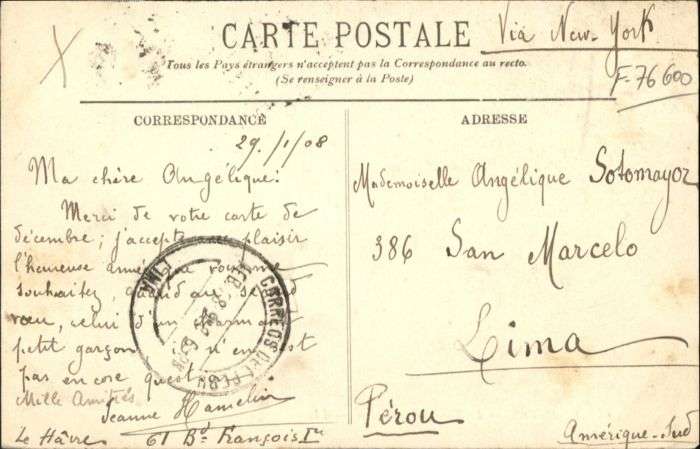 CARTE POSTALE
Via New-York
Tous les Pays étrangers n'acceptent pas la Correspondance au recto.
(Se renseigner à la Poste)
F-76600
CORRESPONDANCE
29/1/08
Ma chère Angélique:
Merci de votre carte de
décembre; j'accepte avec plaisir
l'heureuse année que vous me
souhaitez, quand au second
vœu, celui d'un charmant
petit garçon il n'en est
pas encore question
Mille Amitiés
Jeanne Hamelin
Le Hâvre 61 Bd François Ier
ADRESSE
Mademoiselle Angélique Sotomayor
386 San Marcelo
Lima
Pérou
Amérique-Sud
CORREOS DEL PERU
LIMA